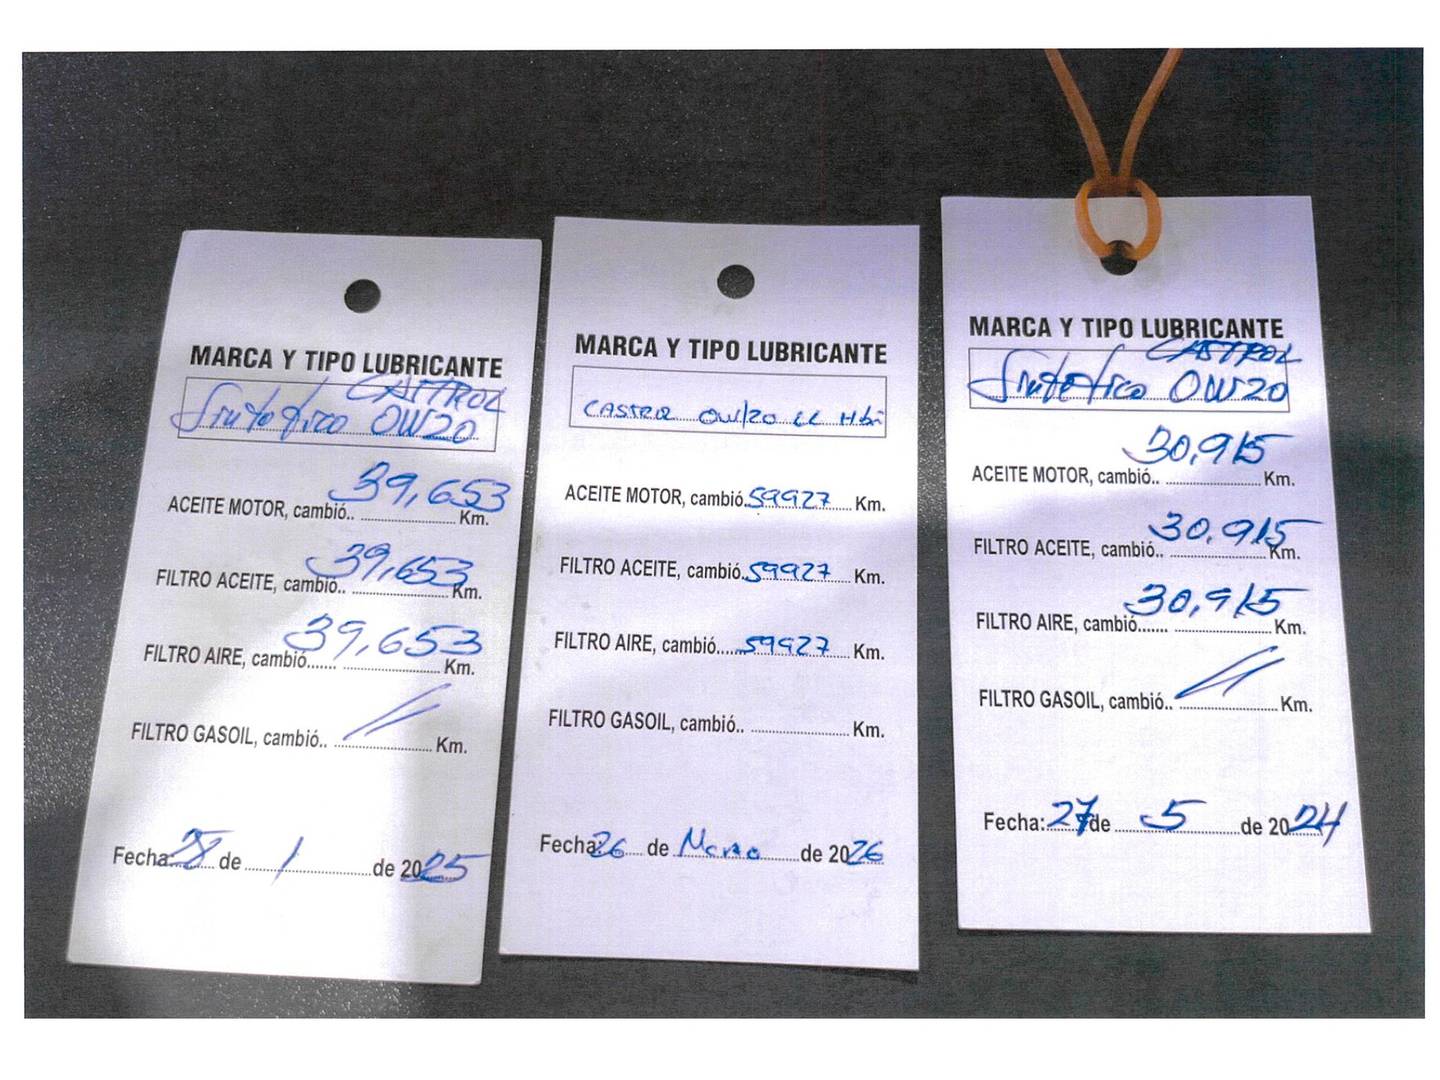 MARCA Y TIPO LUBRICANTE
CASTROL
Sintetico OW20
39,653
ACEITE MOTOR, cambió.. Km.
39,653
FILTRO ACEITE, cambió.. Km.
39,653
FILTRO AIRE, cambió....... Km.
FILTRO GASOIL, cambió.. Km.
Fecha: 28 de 1 de 2025
MARCA Y TIPO LUBRICANTE
CASTROL OW/20
ACEITE MOTOR, cambió. 59927 Km.
FILTRO ACEITE, cambió. 59927 Km.
FILTRO AIRE, cambió....... 59927 Km.
FILTRO GASOIL, cambió.. Km.
Fecha: 26 de de 2026
MARCA Y TIPO LUBRICANTE
CASTROL
Sintetico OW20
30,915
ACEITE MOTOR, cambió.. Km.
30,915
FILTRO ACEITE, cambió.. Km.
30,915
FILTRO AIRE, cambió....... Km.
FILTRO GASOIL, cambió.. Km.
Fecha: 27 de 5 de 2024